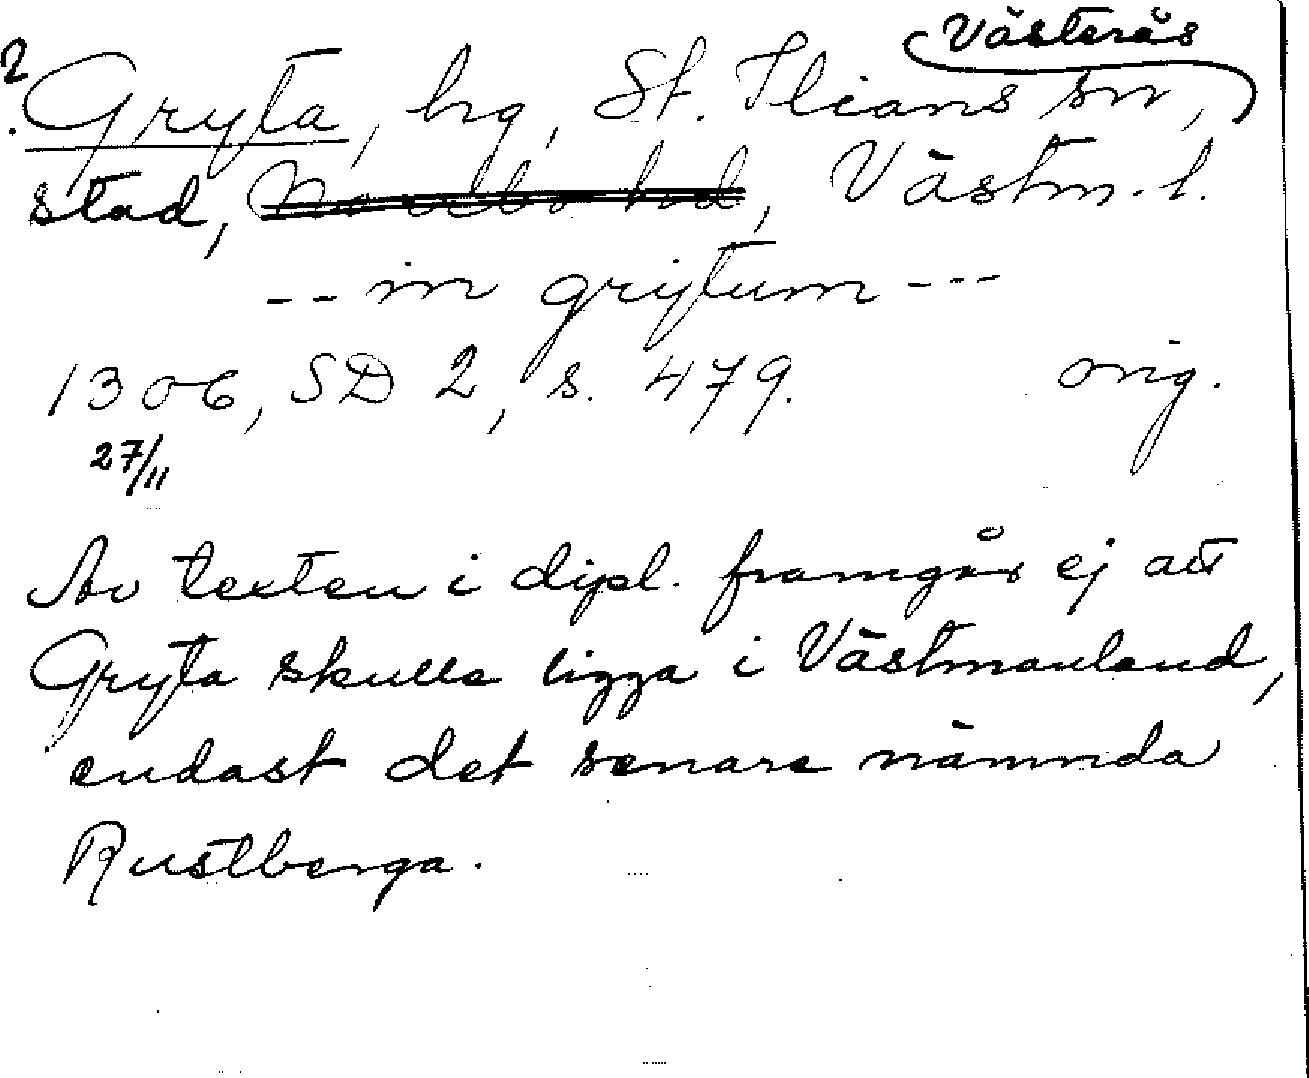 Västerås
? Gryta, hg, St. Ilians sn,
stad, Norrbo hd, Västm. l.
-- in grytum ---
1306, SD 2, s. 479. orig.
27/11
Av texten i dipl. framgår ej att
Gryta skulle ligga i Västmanland,
endast det senare nämnda
Rustberga.